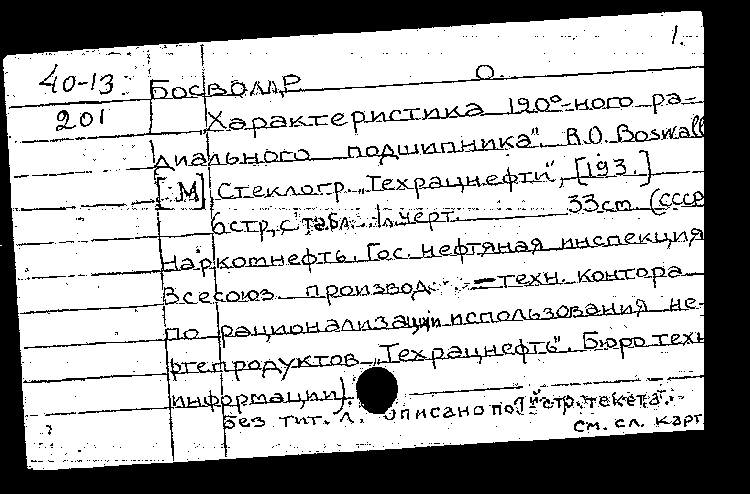 1.
40-13
201
Босволлр О.
"Характеристика 120°-ного ра-
диального подшипника". R.O. Boswall
[М] Стеклогр. "Техрацнефти", [193.]
6стр, с табл. 1л. черт. 33cm (СССР
Наркомнефть. Гос. нефтяная инспекция
Всесоюз. производ. - техн. контора
по рационализации использования не-
фтепродуктов "Техрацнефть". Бюро техн
информации).
Без тит. л. Описано по 1й стр. текста.
см. сл. карт